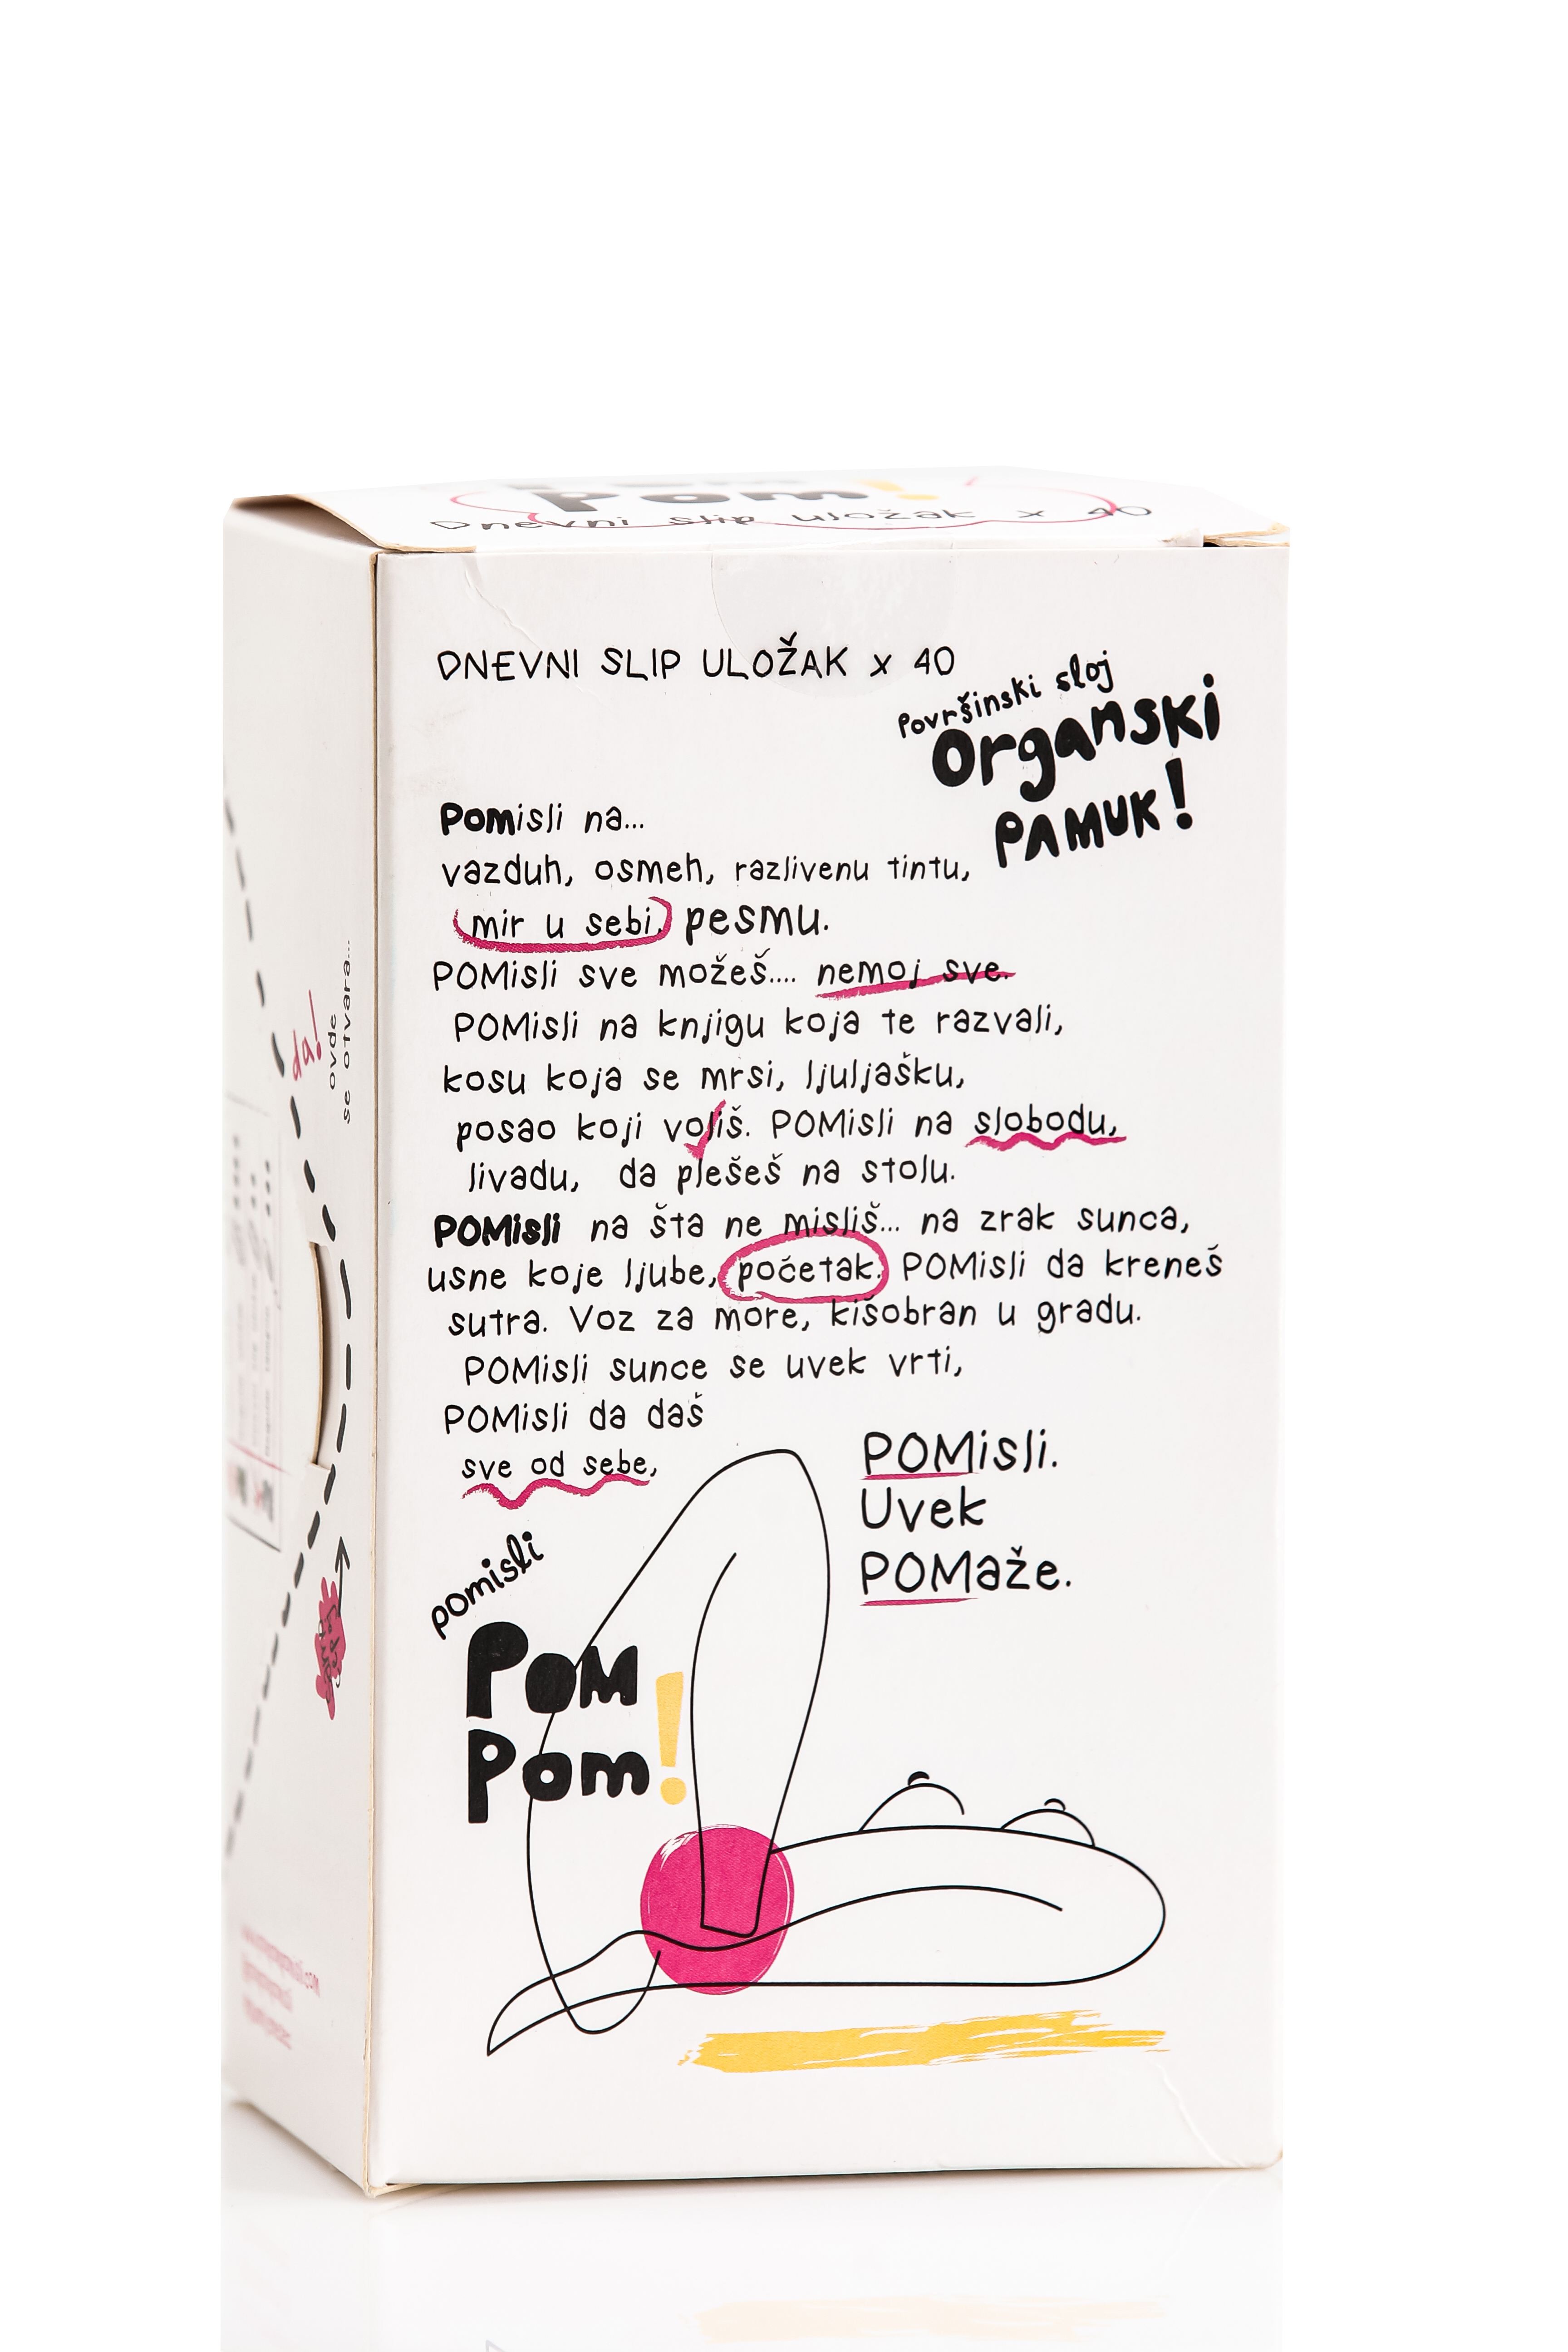 Pom!
Dnevni slip uložak x 40
DNEVNI SLIP ULOŽAK x 40
Površinski sloj
Organski
PAMUK!
POMisli na...
vazduh, osmeh, razlivenu tintu,
mir u sebi, pesmu.
POMisli sve možeš.... nemoj sve.
POMisli na knjigu koja te razvali,
kosu koja se mrsi, ljuljašku,
posao koji voliš. POMisli na slobodu,
livadu, da plešeš na stolu.
POMisli na šta ne misliš... na zrak sunca,
usne koje ljube, početak. POMisli da kreneš
sutra. Voz za more, kišobran u gradu.
POMisli sunce se uvek vrti,
POMisli da daš
sve od sebe,
POMisli.
Uvek
POMaže.
pomisli
POM
Pom!
da!
ovde
se otvara...